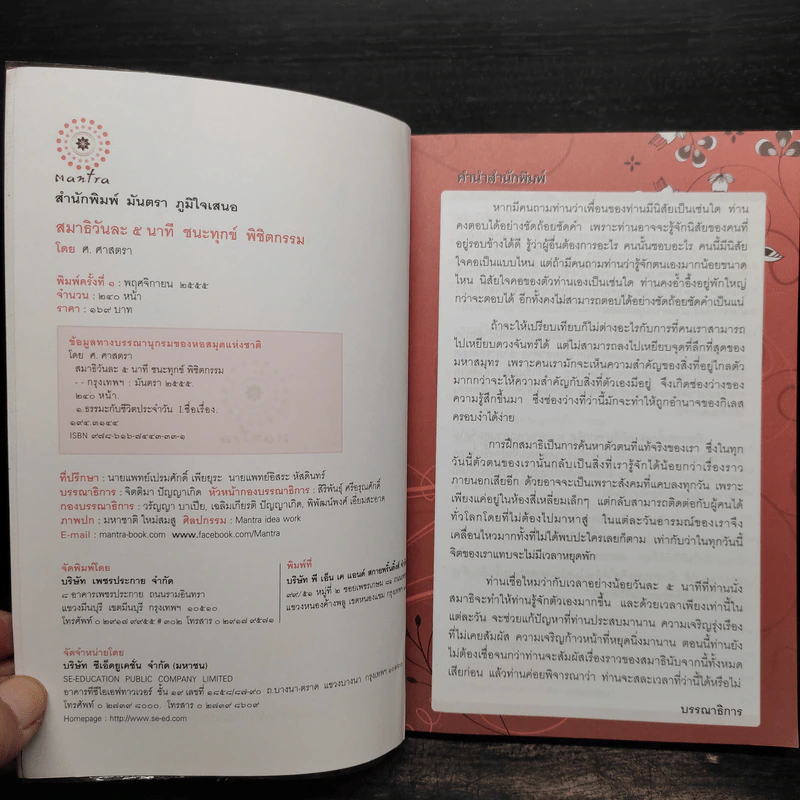 Mantra
สำนักพิมพ์ มันตรา ภูมิใจเสนอ
สมาธิวันละ ๕ นาที ชนะทุกข์ พิชิตกรรม
โดย ศ. ศาสตรา
พิมพ์ครั้งที่ ๑ : พฤศจิกายน ๒๕๕๕
จำนวน : ๒๔๐ หน้า
ราคา : ๑๖๙ บาท
ข้อมูลทางบรรณานุกรมของหอสมุดแห่งชาติ
โดย ศ. ศาสตรา
สมาธิวันละ ๕ นาที ชนะทุกข์ พิชิตกรรม
- - กรุงเทพฯ : มันตรา ๒๕๕๕.
๒๔๐ หน้า.
๑.ธรรมะกับชีวิตประจำวัน I.ชื่อเรื่อง.
๑๙๔.๓๑๔๔
ISBN ๙๗๘-๖๑๖-๗๔๔๓-๓๓-๑
ที่ปรึกษา : นายแพทย์เปรมศักดิ์ เพียยุระ นายแพทย์อิสระ หัสดินทร์
บรรณาธิการ : จิตติมา ปัญญาเกิด หัวหน้ากองบรรณาธิการ : สิริพันธุ์ ศรีอรุณศักดิ์
กองบรรณาธิการ : วรัญญา บาเปีย, เฉลิมเกียรติ ปัญญาเกิด, พิพัฒน์พงศ์ เอี่ยมสะอาด
ภาพปก : มหาชาติ ใหม่สมสู ศิลปกรรม : Mantra idea work
E-mail : mantra-book.com www.facebook.com/Mantra
จัดพิมพ์โดย
บริษัท เพชรประกาย จำกัด
๘ อาคารเพชรประกาย ถนนรามอินทรา
แขวงมีนบุรี เขตมีนบุรี กรุงเทพฯ ๑๐๕๑๐
โทรศัพท์ ๐ ๒๙๑๗ ๙๙๕๕ # ๓๐๒ โทรสาร ๐ ๒๙๑๗ ๙๕๗๑
พิมพ์ที่
บริษัท พี เอ็น เค แอนด์ สกายพริ้นติ้งส์
๙๙/๕๑ หมู่ที่ ๒ ซอยเพชรเกษม ๘๑
แขวงหนองค้างพลู เขตหนองแขม
จัดจำหน่ายโดย
บริษัท ซีเอ็ดยูเคชั่น จำกัด (มหาชน)
SE-EDUCATION PUBLIC COMPANY LIMITED
อาคารทีซีไอเอฟทาวเวอร์ ชั้น ๑๙ เลขที่ ๑๘๕๘/๘๗-๙๐ ถ.บางนา-ตราด แขวงบางนา กรุงเทพฯ
โทรศัพท์ ๐ ๒๗๓๙ ๘๐๐๐. โทรสาร ๐ ๒๗๓๙ ๘๖๐๙
Homepage : http://www.se-ed.com
คำนำสำนักพิมพ์
หากมีคนถามท่านว่าเพื่อนของท่านมีนิสัยเป็นเช่นใด ท่าน
คงตอบได้อย่างชัดถ้อยชัดคำ เพราะท่านอาจจะรู้จักนิสัยของคนที่
อยู่รอบข้างได้ดี รู้ว่าผู้อื่นต้องการอะไร คนนั้นชอบอะไร คนนี้มีนิสัย
ใจคอเป็นแบบไหน แต่ถ้ามีคนถามท่านว่ารู้จักตนเองมากน้อยขนาด
ไหน นิสัยใจคอของตัวท่านเองเป็นเช่นใด ท่านคงอ้ำอึ้งอยู่พักใหญ่
กว่าจะตอบได้ อีกทั้งคงไม่สามารถตอบได้อย่างชัดถ้อยชัดคำเป็นแน่
ถ้าจะให้เปรียบเทียบก็ไม่ต่างอะไรกับการที่คนเราสามารถ
ไปเหยียบดวงจันทร์ได้ แต่ไม่สามารถลงไปเหยียบจุดที่ลึกที่สุดของ
มหาสมุทร เพราะคนเรามักจะเห็นความสำคัญของสิ่งที่อยู่ไกลตัว
มากกว่าจะให้ความสำคัญกับสิ่งที่ตัวเองมีอยู่ จึงเกิดช่องว่างของ
ความรู้สึกขึ้นมา ซึ่งช่องว่างที่ว่านี้มักจะทำให้ถูกอำนาจของกิเลส
ครอบงำได้ง่าย
การฝึกสมาธิเป็นการค้นหาตัวตนที่แท้จริงของเรา ซึ่งในทุก
วันนี้ตัวตนของเรานั้นกลับเป็นสิ่งที่เรารู้จักได้น้อยกว่าเรื่องราว
ภายนอกเสียอีก ด้วยอาจจะเป็นเพราะสังคมที่แคบลงทุกวัน เพราะ
เพียงแค่อยู่ในห้องสี่เหลี่ยมเล็กๆ แต่กลับสามารถติดต่อกับผู้คนได้
ทั่วโลกโดยที่ไม่ต้องไปมาหาสู่ ในแต่ละวันอารมณ์ของเราจึง
เคลื่อนไหวมากทั้งที่ไม่ได้พบปะใครเลยก็ตาม เท่ากับว่าในทุกวันนี้
จิตของเราแทบจะไม่มีเวลาหยุดพัก
ท่านเชื่อไหมว่ากับเวลาอย่างน้อยวันละ ๕ นาทีที่ท่านนั่ง
สมาธิจะทำให้ท่านรู้จักตัวเองมากขึ้น และด้วยเวลาเพียงเท่านี้ใน
แต่ละวัน จะช่วยแก้ปัญหาที่ท่านประสบมานาน ความเจริญรุ่งเรือง
ที่ไม่เคยสัมผัส ความเจริญก้าวหน้าที่หยุดนิ่งมานาน ตอนนี้ท่านยัง
ไม่ต้องเชื่อจนกว่าท่านจะสัมผัสเรื่องราวของสมาธินับจากนี้ทั้งหมด
เสียก่อน แล้วท่านค่อยพิจารณาว่า ท่านจะสละเวลาที่ว่านี้ได้หรือไม่
บรรณาธิการ